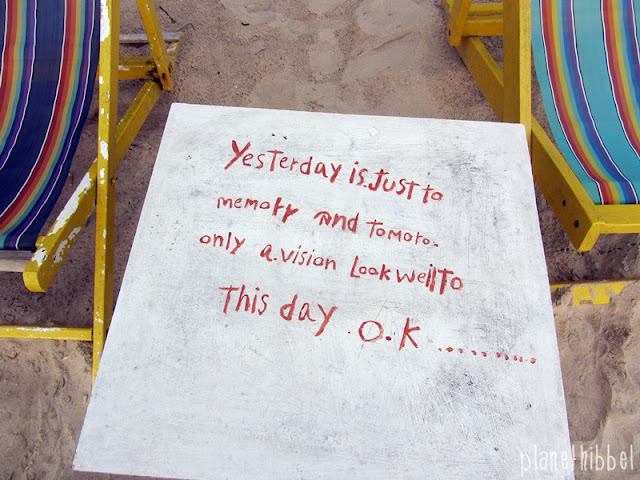 Yesterday is.Just to
memory And Tomoro.
only a.vision Look well To
This day .O.K ...........
planethibbel